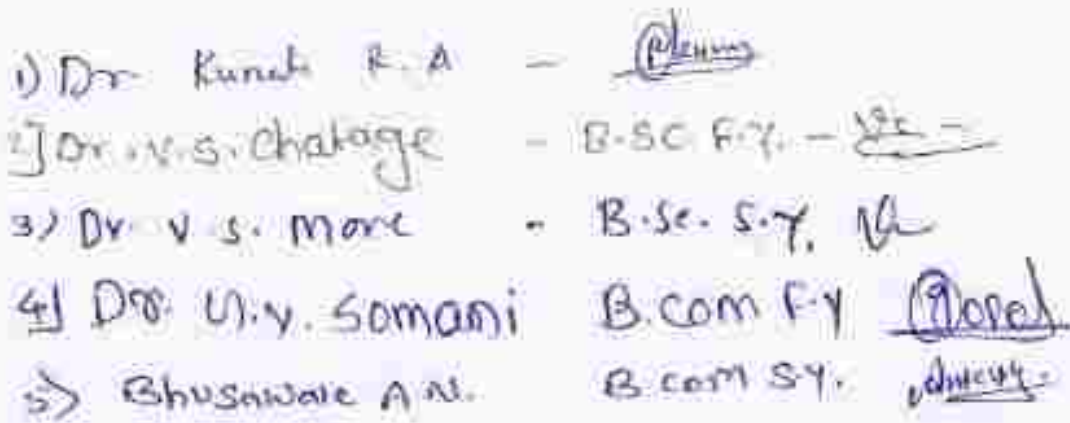 1) Dr Kunale R. A -
2] Dr. V. S. Chatage - B.SC. F.Y. -
3) Dr. V S. More - B.Sc. S.Y.
4] Dr. U.V. Somani B.com F.Y
5) Bhusaware A N. B.com S.Y.